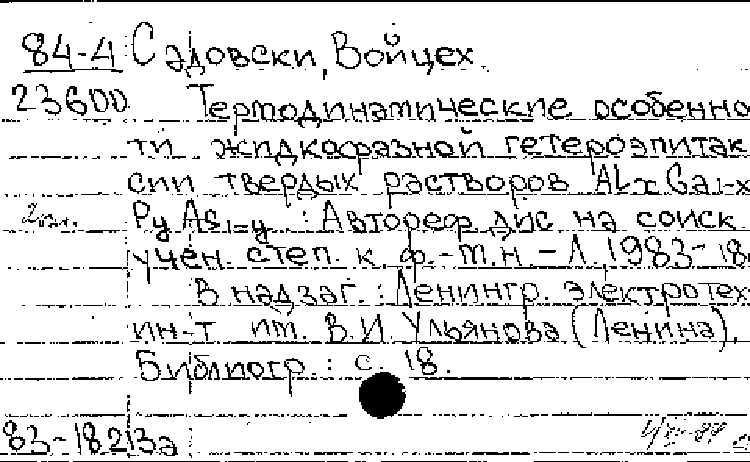 84-4 Садовски, Войцех.
23600 Термодинамические особеннос
ти жидкофазной гетероэпитак
сии твердых растворов AlxGa1-x
2 экз. PyAs1-y : Автореф. дис на соиск
учен. степ. к. ф.-т.н. - Л. 1983 - 18
В надзаг.: Ленингр. электротех
ин-т им. В.И. Ульянова (Ленина).
Библиогр.: с. 18.
83-18213а